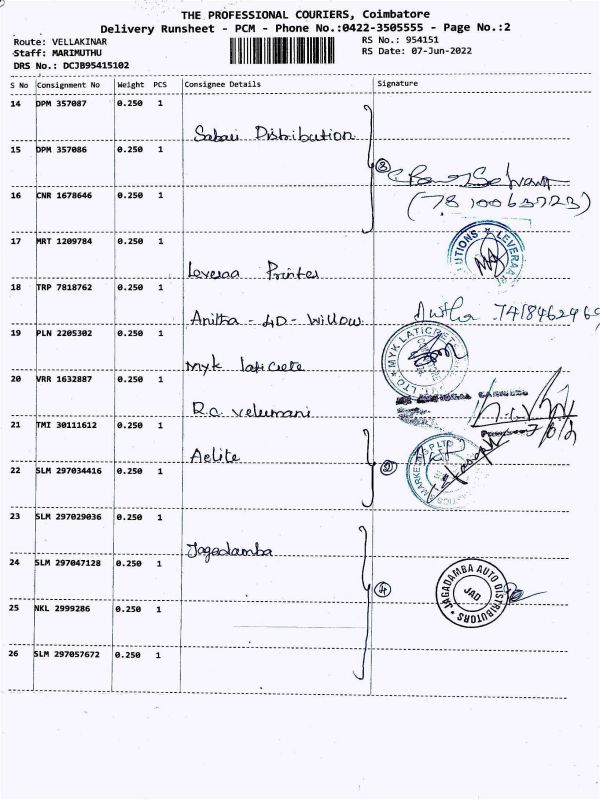 THE PROFESSIONAL COURIERS, Coimbatore
Delivery Runsheet - PCM - Phone No.:0422-3505555 - Page No.:2
Route: VELLAKINAR
RS No.: 954151
Staff: MARIMUTHU
RS Date: 07-Jun-2022
DRS No.: DCJB95415102
S No Consignment No Weight PCS Consignee Details Signature
14 DPM 357087 0.250 1
Sabari Distribution
15 DPM 357086 0.250 1
3
16 CNR 1678646 0.250 1
(7810063723)
17 MRT 1209784 0.250 1
UTIONS ★ LEVERAA
Leveraa Printer
18 TRP 7818762 0.250 1
Anitha - 4D - Willow
Anitha
19 PLN 2205302 0.250 1
MYK LATICRETE
LTD
Myk laticrete
20 VRR 1632887 0.250 1
R.C. Velumani
21 TMI 30111612 0.250 1
Aelite
2
22 SLM 297034416 0.250 1
23 SLM 297029036 0.250 1
Jagadamba
24 SLM 297047128 0.250 1
4
JAGADAMBA AUTO DISTRIBUTORS
JAD
25 NKL 2999286 0.250 1
26 SLM 297057672 0.250 1